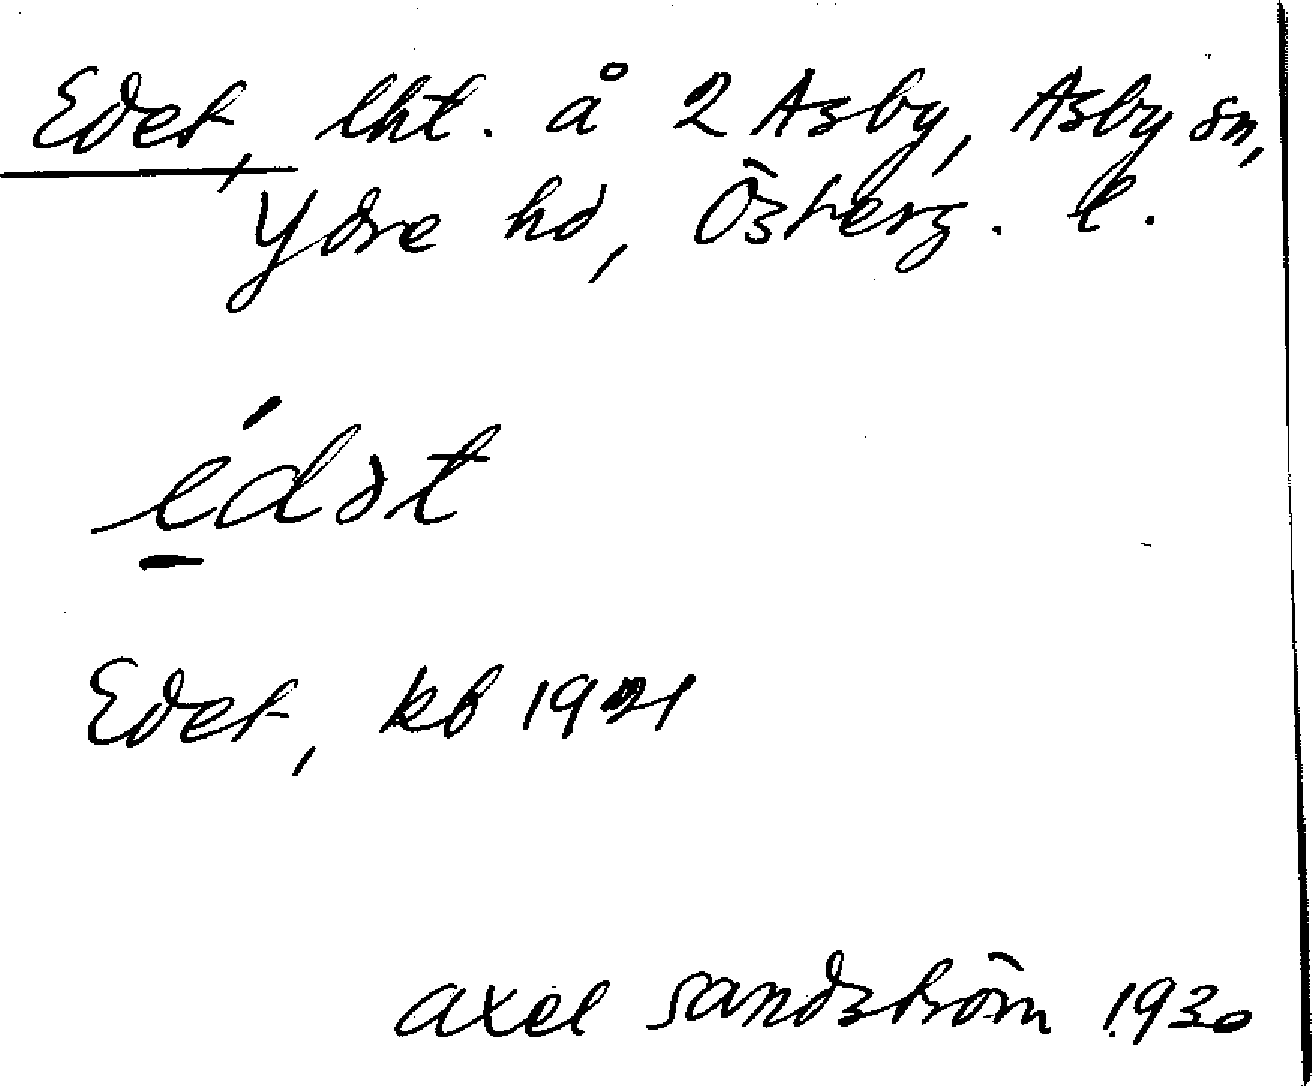 Edet, lht. å 2 Asby, Asby sn,
Ydre hd, Österg. l.
édət
Edet, kb 1921
axel sandström 1930